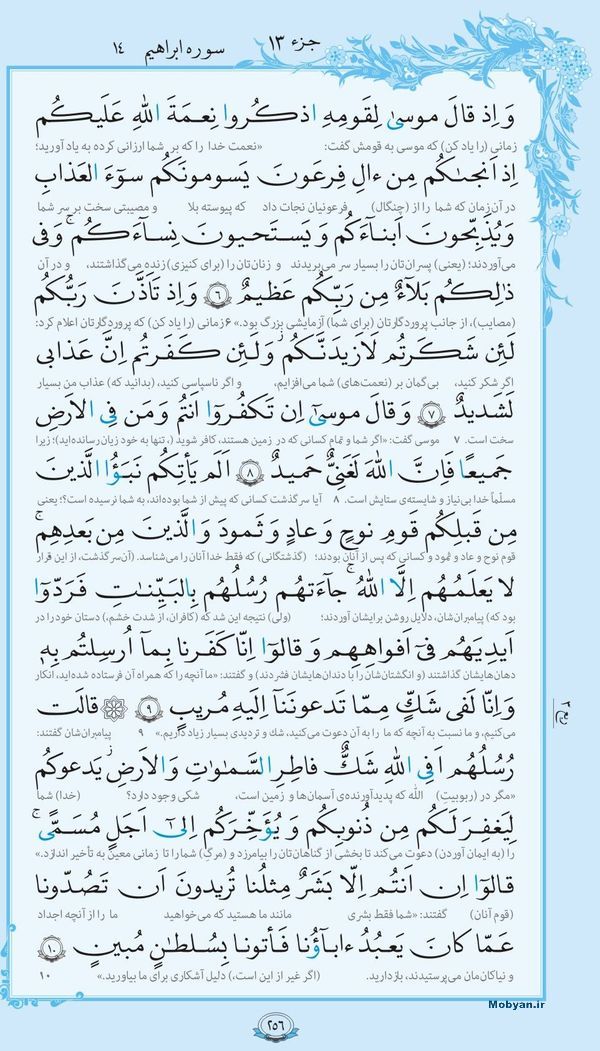 جزء ۱۳ سوره ابراهیم ۱۴
وَ اِذ قالَ موسىٰ لِقَومِهِ اذكُروا نِعمَةَ اللهِ عَلَيكُم
زمانی (را یاد کن) که موسی به قومش گفت: «نعمت خدا را که بر شما ارزانی کرده به یاد آورید؛
اِذ اَنجىٰكُم مِن ءالِ فِرعَونَ يَسومونَكُم سوٓءَ العَذابِ
در آن زمان که شما را از (چنگال) فرعونیان نجات داد که پیوسته بلا و مصیبتی سخت بر سر شما
وَيُذَبِّحونَ اَبنآءَكُم وَ يَستَحيونَ نِسآءَكُم ۚ وَفى
می‌آوردند؛ (یعنی) پسران‌تان را بسیار سر می‌بریدند و زنان‌تان را (برای کنیزی) زنده می‌گذاشتند، و در آن
ذٰلِكُم بَلآءٌ مِن رَبِّكُم عَظيمٌ ﴿٦﴾ وَ اِذ تَاَذَّنَ رَبُّكُم
(مصایب)، از جانب پروردگارتان (برای شما) آزمایشی بزرگ بود.» ۶ زمانی (را یاد کن) که پروردگارتان اعلام کرد:
لَئِن شَكَرتُم لَاَزيدَنَّكُم وَلَئِن كَفَرتُم اِنَّ عَذابى
اگر شکر کنید، بی‌گمان بر (نعمت‌های) شما می‌افزایم، و اگر ناسپاسی کنید، (بدانید که) عذاب من بسیار
لَشَديدٌ ﴿٧﴾ وَ قالَ موسىٰٓ اِن تَكفُروٓا اَنتُم وَ مَن فِى الاَرضِ
سخت است. ۷ موسی گفت: «اگر شما و تمام کسانی که در زمین هستند، کافر شوید (، تنها به خود زیان رسانده‌اید)؛ زیرا
جَميعًا فَاِنَّ اللهَ لَغَنِىٌّ حَميدٌ ﴿٨﴾ اَلَم يَأتِكُم نَبَؤُا الَّذينَ
مسلّماً خدا بی‌نیاز و شایسته‌ی ستایش است. ۸ آیا سرگذشت کسانی که پیش از شما بوده‌اند، به شما نرسیده است؟؛ یعنی
مِن قَبلِكُم قَومِ نوحٍ وَ عادٍ وَ ثَمودَ وَ الَّذينَ مِن بَعدِهِم ۚ
قوم نوح و عاد و ثمود و کسانی که پس از آنان بودند؛ (گذشتگانی) که فقط خدا آنان را می‌شناسد. (آن سرگذشت، از این قرار
لا يَعلَمُهُم اِلَّا اللهُ ۚ جآءَتهُم رُسُلُهُم بِالبَيِّنٰتِ فَرَدّوٓا
بود که) پیامبران‌شان، دلایل روشن برایشان آوردند؛ (ولی) نتیجه این شد که (کافران، از شدت خشم،) دستان خود را در
اَيدِيَهُم فىٓ اَفواهِهِم وَ قالوٓا اِنّا كَفَرنا بِمآ اُرسِلتُم بِهٖ
دهان‌هایشان گذاشتند (و انگشتان‌شان را با دندان‌هایشان فشردند) و گفتند: «ما آنچه را که همراه آن فرستاده شده‌اید، انکار
وَ اِنّا لَفى شَكٍّ مِمّا تَدعونَنآ اِلَيهِ مُريبٍ ﴿٩﴾ قالَت
می‌کنیم، و ما نسبت به آنچه که ما را به آن دعوت می‌کنید، شک و تردیدی بسیار زیاد داریم.» ۹ پیامبران‌شان گفتند:
رُسُلُهُم اَفِى اللهِ شَكٌّ فاطِرِ السَّمٰوٰتِ وَ الاَرضِ يَدعوكُم
«مگر در (ربوبیت) الله که پدیدآورنده‌ی آسمان‌ها و زمین است، شکی وجود دارد؟ (خدا) شما
لِيَغفِرَ لَكُم مِن ذُنوبِكُم وَ يُؤَخِّرَكُم اِلىٰٓ اَجَلٍ مُسَمًّى ۚ
را (به ایمان آوردن) دعوت می‌کند تا بخشی از گناهان‌تان را بیامرزد و (مرگِ) شما را تا زمانی معیّن به تأخیر اندازد.»
قالوٓا اِن اَنتُم اِلّا بَشَرٌ مِثلُنا تُريدونَ اَن تَصُدّونا
(قوم آنان) گفتند: «شما فقط بشری مانند ما هستید که می‌خواهید ما را از آنچه اجداد
عَمّا كانَ يَعبُدُ ءابآؤُنا فَأتونا بِسُلطٰنٍ مُبينٍ ﴿١٠﴾
و نیاکان‌مان می‌پرستیدند، بازدارید. (اگر غیر از این است،) دلیل آشکاری برای ما بیاورید.» ۱۰
۲۵۶
Mobyan.ir